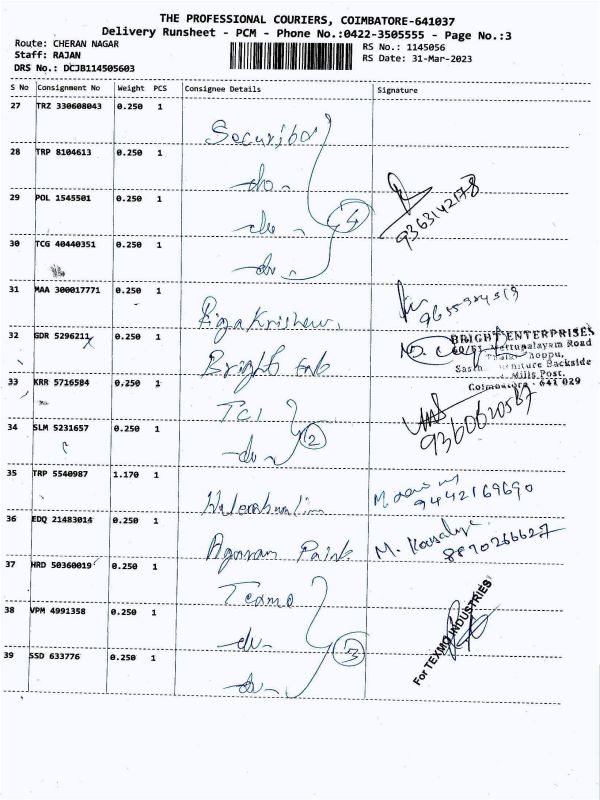 THE PROFESSIONAL COURIERS, COIMBATORE-641037
Delivery Runsheet - PCM - Phone No.:0422-3505555 - Page No.:3
Route: CHERAN NAGAR
RS No.: 1145056
Staff: RAJAN
RS Date: 31-Mar-2023
DRS No.: DCJB114505603
S No Consignment No Weight PCS Consignee Details Signature
27 TRZ 330608043 0.250 1
28 TRP 8104613 0.250 1 do
29 POL 1545501 0.250 1 do 4 9363142178
30 TCG 40440351 0.250 1 do
31 MAA 300017771 0.250 1
32 GDR 5296211 0.250 1 Bright BRIGHT ENTERPRISES
Mettupalayam Road
Backside
Mills Post,
Coimbatore - 641 029
33 KRR 5716584 0.250 1 TCI 9360620587
34 SLM 5231657 0.250 1 do 2
35 TRP 5540987 1.170 1 9442169690
36 EDQ 21483014 0.250 1 Agaram Paints M. Kousalya 8870266627
37 HRD 50360019 0.250 1 Texmo
38 VPM 4991358 0.250 1 do For TEXMO INDUSTRIES
39 SSD 633776 0.250 1 do 3